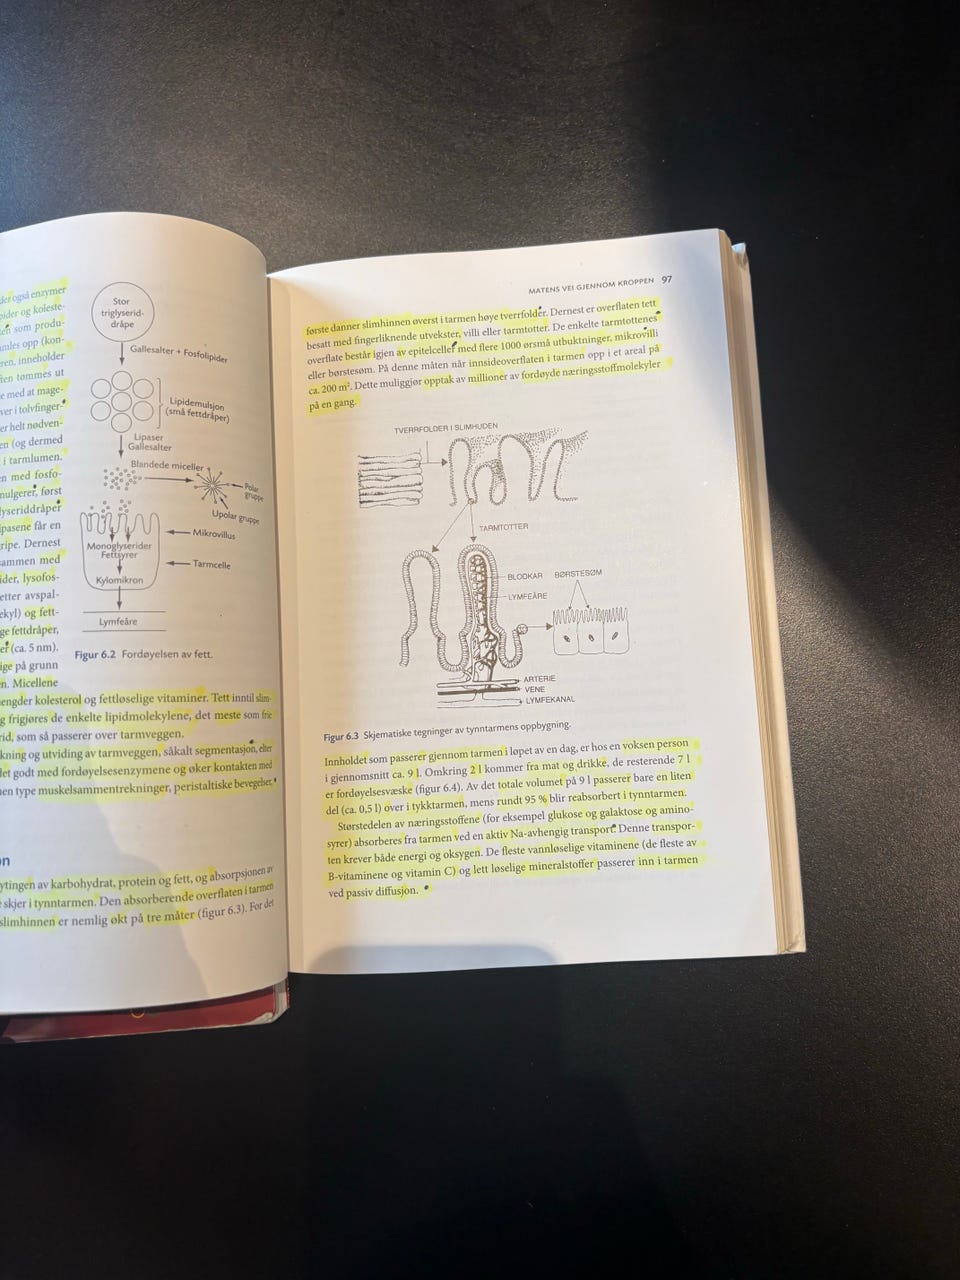 der også enzymer
pider og koleste-
en som produ-
mles opp (kon-
ren, inneholder
ten tømmes ut
e med at mage-
ver i tolvfinger-
er helt nødven-
en (og dermed
i tarmlumen.
en med fosfo-
mulgerer, først
lyseriddråper
ipasene får en
ripe. Dernest
sammen med
ider, lysofos-
etter avspal-
ekyl) og fett-
ge fettdråper,
er (ca. 5 nm).
ige på grunn
n. Micellene
Stor
triglyserid-
dråpe
Gallesalter + Fosfolipider
Lipidemulsjon
(små fettdråper)
Lipaser
Gallesalter
Blandede miceller
Polar
gruppe
Upolar gruppe
Mikrovillus
Monoglyserider
Fettsyrer
Tarmcelle
Kylomikron
Lymfeåre
Figur 6.2 Fordøyelsen av fett.
engder kolesterol og fettløselige vitaminer. Tett inntil slim-
g frigjøres de enkelte lipidmolekylene, det meste som frie
rid, som så passerer over tarmveggen.
kning og utviding av tarmveggen, såkalt segmentasjon, eller
det godt med fordøyelsesenzymene og øker kontakten med
en type muskelsammentrekninger, peristaltiske bevegelser,
on
ytingen av karbohydrat, protein og fett, og absorpsjonen av
skjer i tynntarmen. Den absorberende overflaten i tarmen
slimhinnen er nemlig økt på tre måter (figur 6.3). For det
MATENS VEI GJENNOM KROPPEN 97
første danner slimhinnen øverst i tarmen høye tverrfolder. Dernest er overflaten tett
besatt med fingerliknende utvekster, villi eller tarmtotter. De enkelte tarmtottenes
overflate består igjen av epitelceller med flere 1000 ørsmå utbuktninger, mikrovilli
eller børstesøm. På denne måten når innsideoverflaten i tarmen opp i et areal på
ca. 200 m². Dette muliggjør opptak av millioner av fordøyde næringsstoffmolekyler
på en gang.
TVERRFOLDER I SLIMHUDEN
TARMTOTTER
BLODKAR
BØRSTESØM
LYMFEÅRE
ARTERIE
VENE
LYMFEKANAL
Figur 6.3 Skjematiske tegninger av tynntarmens oppbygning.
Innholdet som passerer gjennom tarmen i løpet av en dag, er hos en voksen person
i gjennomsnitt ca. 9 l. Omkring 2 l kommer fra mat og drikke, de resterende 7 l
er fordøyelsesvæske (figur 6.4). Av det totale volumet på 9 l passerer bare en liten
del (ca. 0,5 l) over i tykktarmen, mens rundt 95 % blir reabsorbert i tynntarmen.
Størstedelen av næringsstoffene (for eksempel glukose og galaktose og amino-
syrer) absorberes fra tarmen ved en aktiv Na-avhengig transport. Denne transpor-
ten krever både energi og oksygen. De fleste vannløselige vitaminene (de fleste av
B-vitaminene og vitamin C) og lett løselige mineralstoffer passerer inn i tarmen
ved passiv diffusjon.